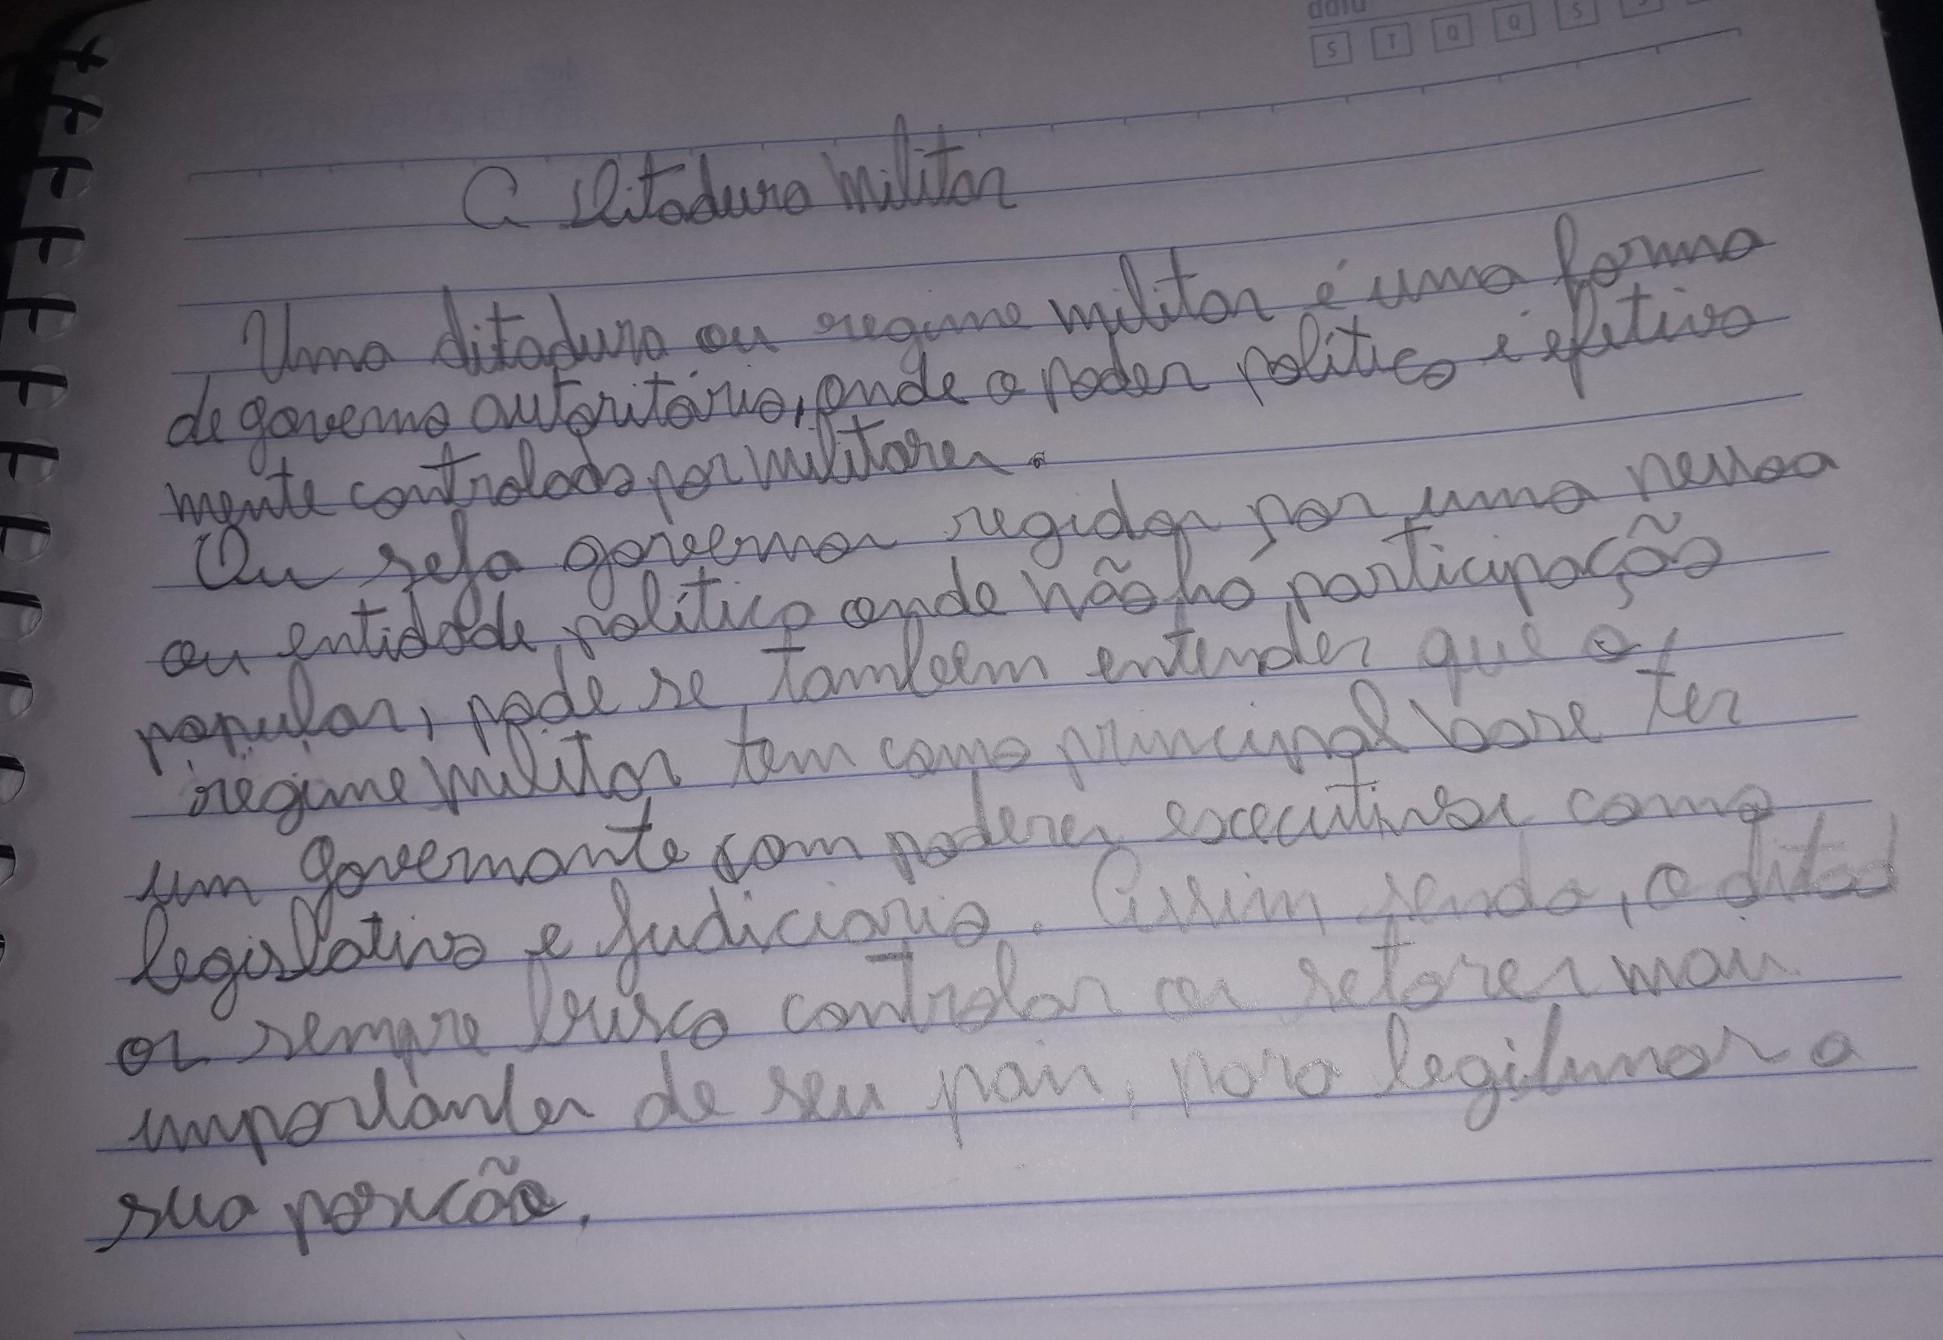 data
S T Q Q S S
A Ditadura militar
Uma ditadura ou regime militar é uma forma
de governo autoritário, onde o poder político é efetiva
mente controlado por militares.
Ou seja governos regidos por uma pessoa
ou entidade política onde não há participação
popular, pode se tambem entender que o
regime militar tem como principal base ter
um governante com poderes executivos como
legislativo e Judiciario. Assim sendo, o ditad
or sempre busca controlar os setores mais
importantes de seu pais, para legitimar a
sua posicão.